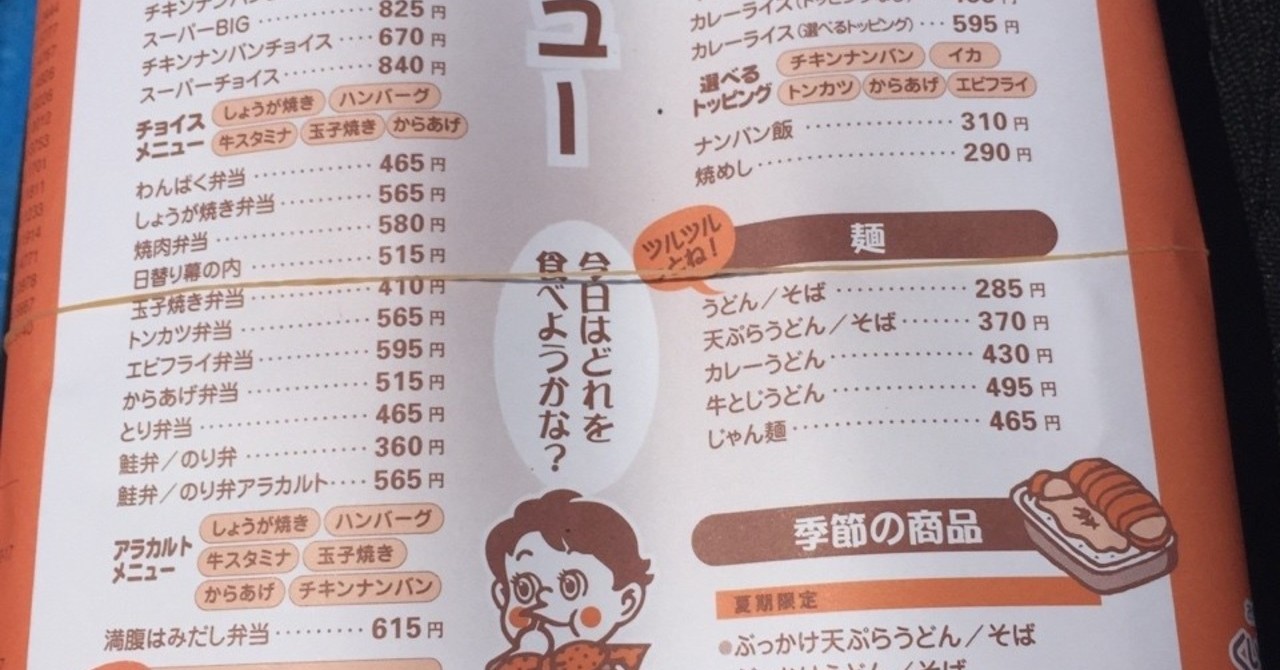 チキンナンバン
スーパーBIG 825円
チキンナンバンチョイス 670円
スーパーチョイス 840円
チョイスメニュー しょうが焼き ハンバーグ
牛スタミナ 玉子焼き からあげ
わんぱく弁当 465円
しょうが焼き弁当 565円
焼肉弁当 580円
日替り幕の内 515円
玉子焼き弁当 410円
トンカツ弁当 565円
エビフライ弁当 595円
からあげ弁当 515円
とり弁当 465円
鮭弁/のり弁 360円
鮭弁/のり弁アラカルト 565円
アラカルトメニュー しょうが焼き ハンバーグ
牛スタミナ 玉子焼き
からあげ チキンナンバン
満腹はみだし弁当 615円
ュー
今日はどれを
食べようかな?
カレーライス
カレーライス(選べるトッピング) 595円
選べるトッピング チキンナンバン イカ
トンカツ からあげ エビフライ
ナンバン飯 310円
焼めし 290円
ツルツル
とね!
麺
うどん/そば 285円
天ぷらうどん/そば 370円
カレーうどん 430円
牛とじうどん 495円
じゃん麺 465円
季節の商品
夏期限定
●ぶっかけ天ぷらうどん/そば